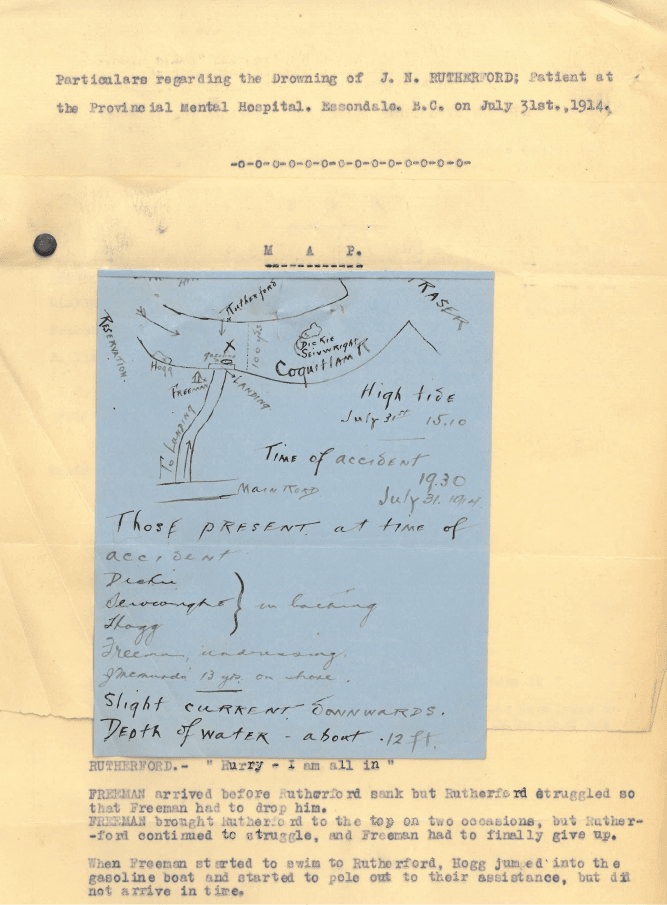 Particulars regarding the Drowning of J. N. RUTHERFORD; Patient at
the Provincial Mental Hospital. Essondale. B.C. on July 31st.,1914.
-o-o-o-o-o-o-o-o-o-o-o-o-o-o-
M A P.
FRASER
Rutherford
RESERVATION.
X
100 yds
DICKIE
SEIVWRIGHT
Hogg
gasoline
Coquitlam R
FREEMAN
LANDING
To LANDING
High tide
July 31st 15.10
TIME of accident
19.30
July 31. 1914.
MAIN ROAD
THOSE PRESENT at TIME of
accident
Dickie
Seivwright } in bathing
Hogg
Freeman, undressing.
13 yrs. on shore.
Slight CURRENT DOWNWARDS.
DEPTH of WATER - about 12 ft.
RUTHERFORD.- " Hurry - I am all in "
FREEMAN arrived before Rutherford sank but Rutherford struggled so
that Freeman had to drop him.
FREEMAN brought Rutherford to the top on two occasions, but Ruther-
-ford continued to struggle, and Freeman had to finally give up.
When Freeman started to swim to Rutherford, Hogg jumped into the
gasoline boat and started to pole out to their assistance, but did
not arrive in time.